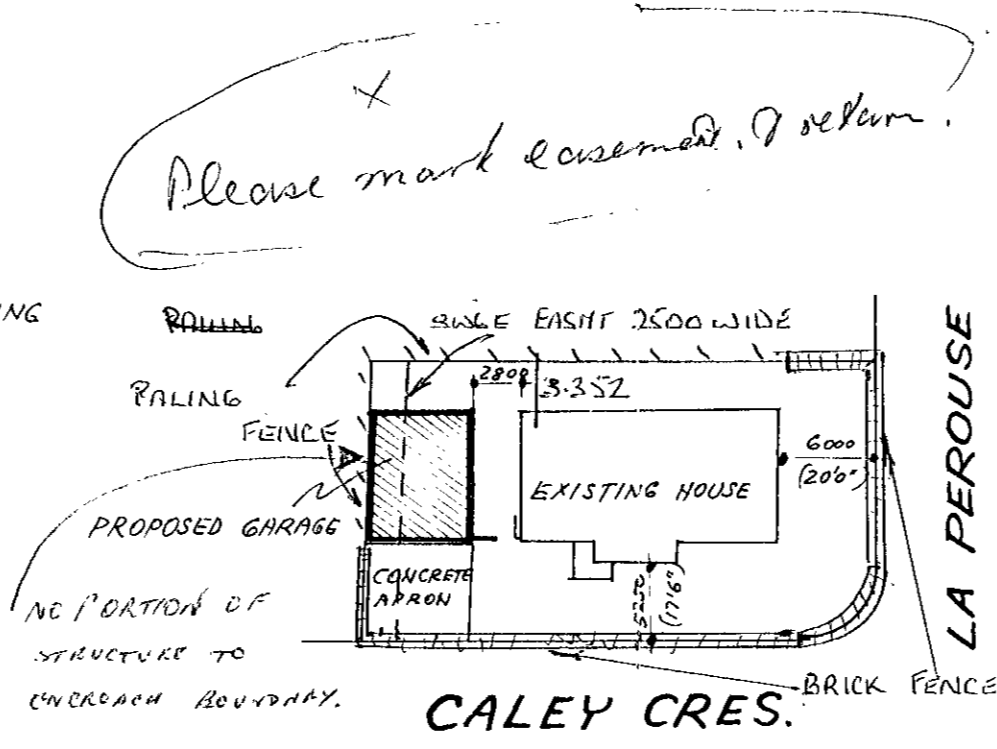 X
Please mark easement. & return.
NG
PALING
SWGE EASMT 2500 WIDE
2800
3.352
PALING
FENCE
6000
(20'0")
EXISTING HOUSE
PROPOSED GARAGE
CONCRETE
APRON
5250
(17'6")
NO PORTION OF
STRUCTURE TO
ENCROACH BOUNDARY.
BRICK FENCE
CALEY CRES.
LA PEROUSE